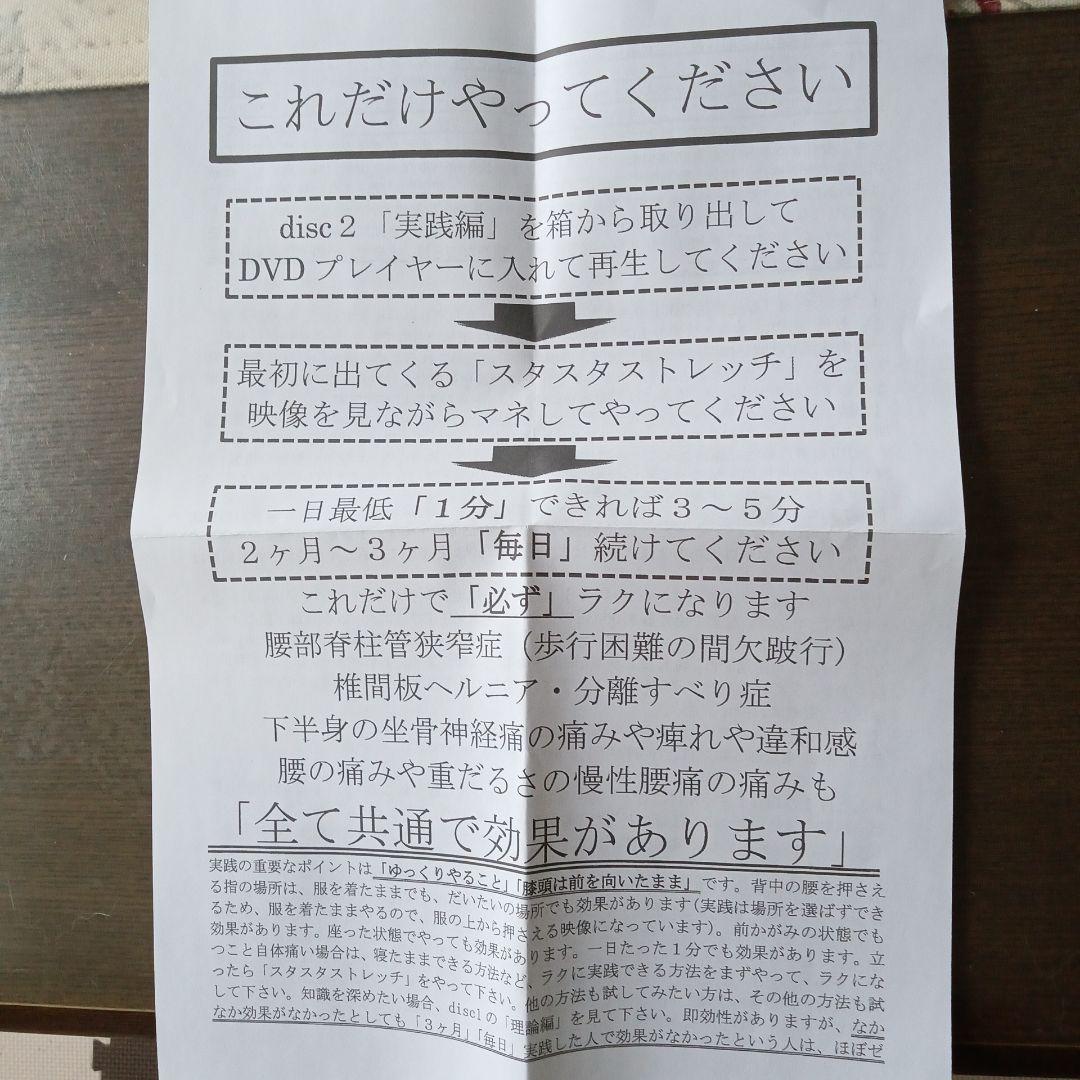 これだけやってください
disc2「実践編」を箱から取り出して
DVDプレイヤーに入れて再生してください
最初に出てくる「スタスタストレッチ」を
映像を見ながらマネしてやってください
一日最低「1分」できれば3～5分
2ヶ月～3ヶ月「毎日」続けてください
これだけで「必ず」ラクになります
腰部脊柱管狭窄症（歩行困難の間欠跛行）
椎間板ヘルニア・分離すべり症
下半身の坐骨神経痛の痛みや痺れや違和感
腰の痛みや重だるさの慢性腰痛の痛みも
「全て共通で効果があります」
実践の重要なポイントは「ゆっくりやること」「膝頭は前を向いたまま」です。背中の腰を押さえ
る指の場所は、服を着たままでも、だいたいの場所でも効果があります(実践は場所を選ばずでき
るため、服を着たままやるので、服の上から押さえる映像になっています)。前かがみの状態でも
効果があります。座った状態でやっても効果があります。一日たった1分でも効果があります。立
つこと自体痛い場合は、寝たままできる方法など、ラクに実践できる方法をまずやって、ラクにな
ったら「スタスタストレッチ」をやって下さい。他の方法も試してみたい方は、その他の方法も試
して下さい。知識を深めたい場合、disc1の「理論編」を見て下さい。即効性がありますが、なか
なか効果がなかったとしても「3ヶ月」「毎日」実践した人で効果がなかったという人は、ほぼゼ